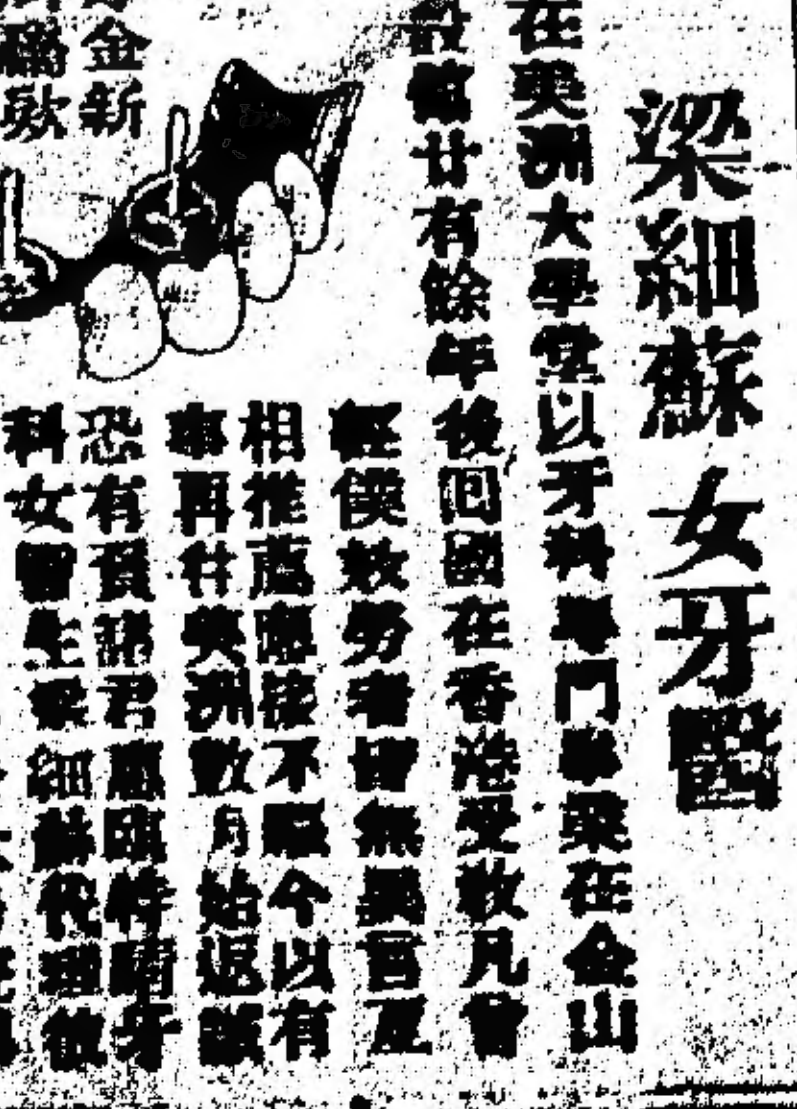 梁細蘇女牙醫
在美洲大學堂以牙科專門畢業在金山
設舘廿有餘年後回國在香港受教凡曾
經僕效勞者皆無異言互
相推薦應接不暇今以有
事再往美洲數月始返誠
恐有負諸君惠臨特囑牙
科女醫生梁細蘇代理敝
金新